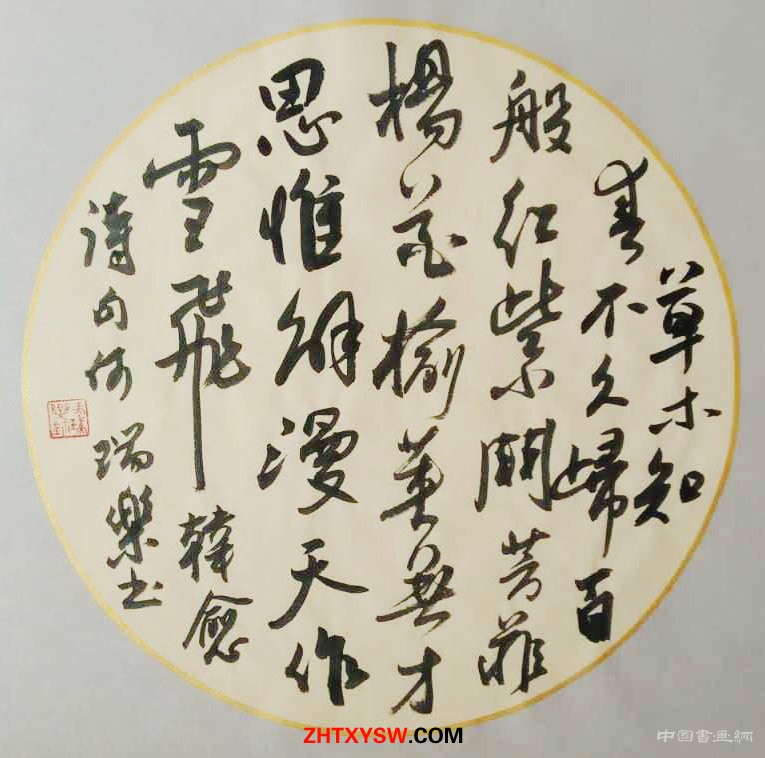 草木知
春不久歸百
般紅紫鬪芳菲
楊花榆莢無才
思惟解漫天作
雪飛韓愈
詩句何瑞樂书
ZHTXYSW.COM
中国書画網